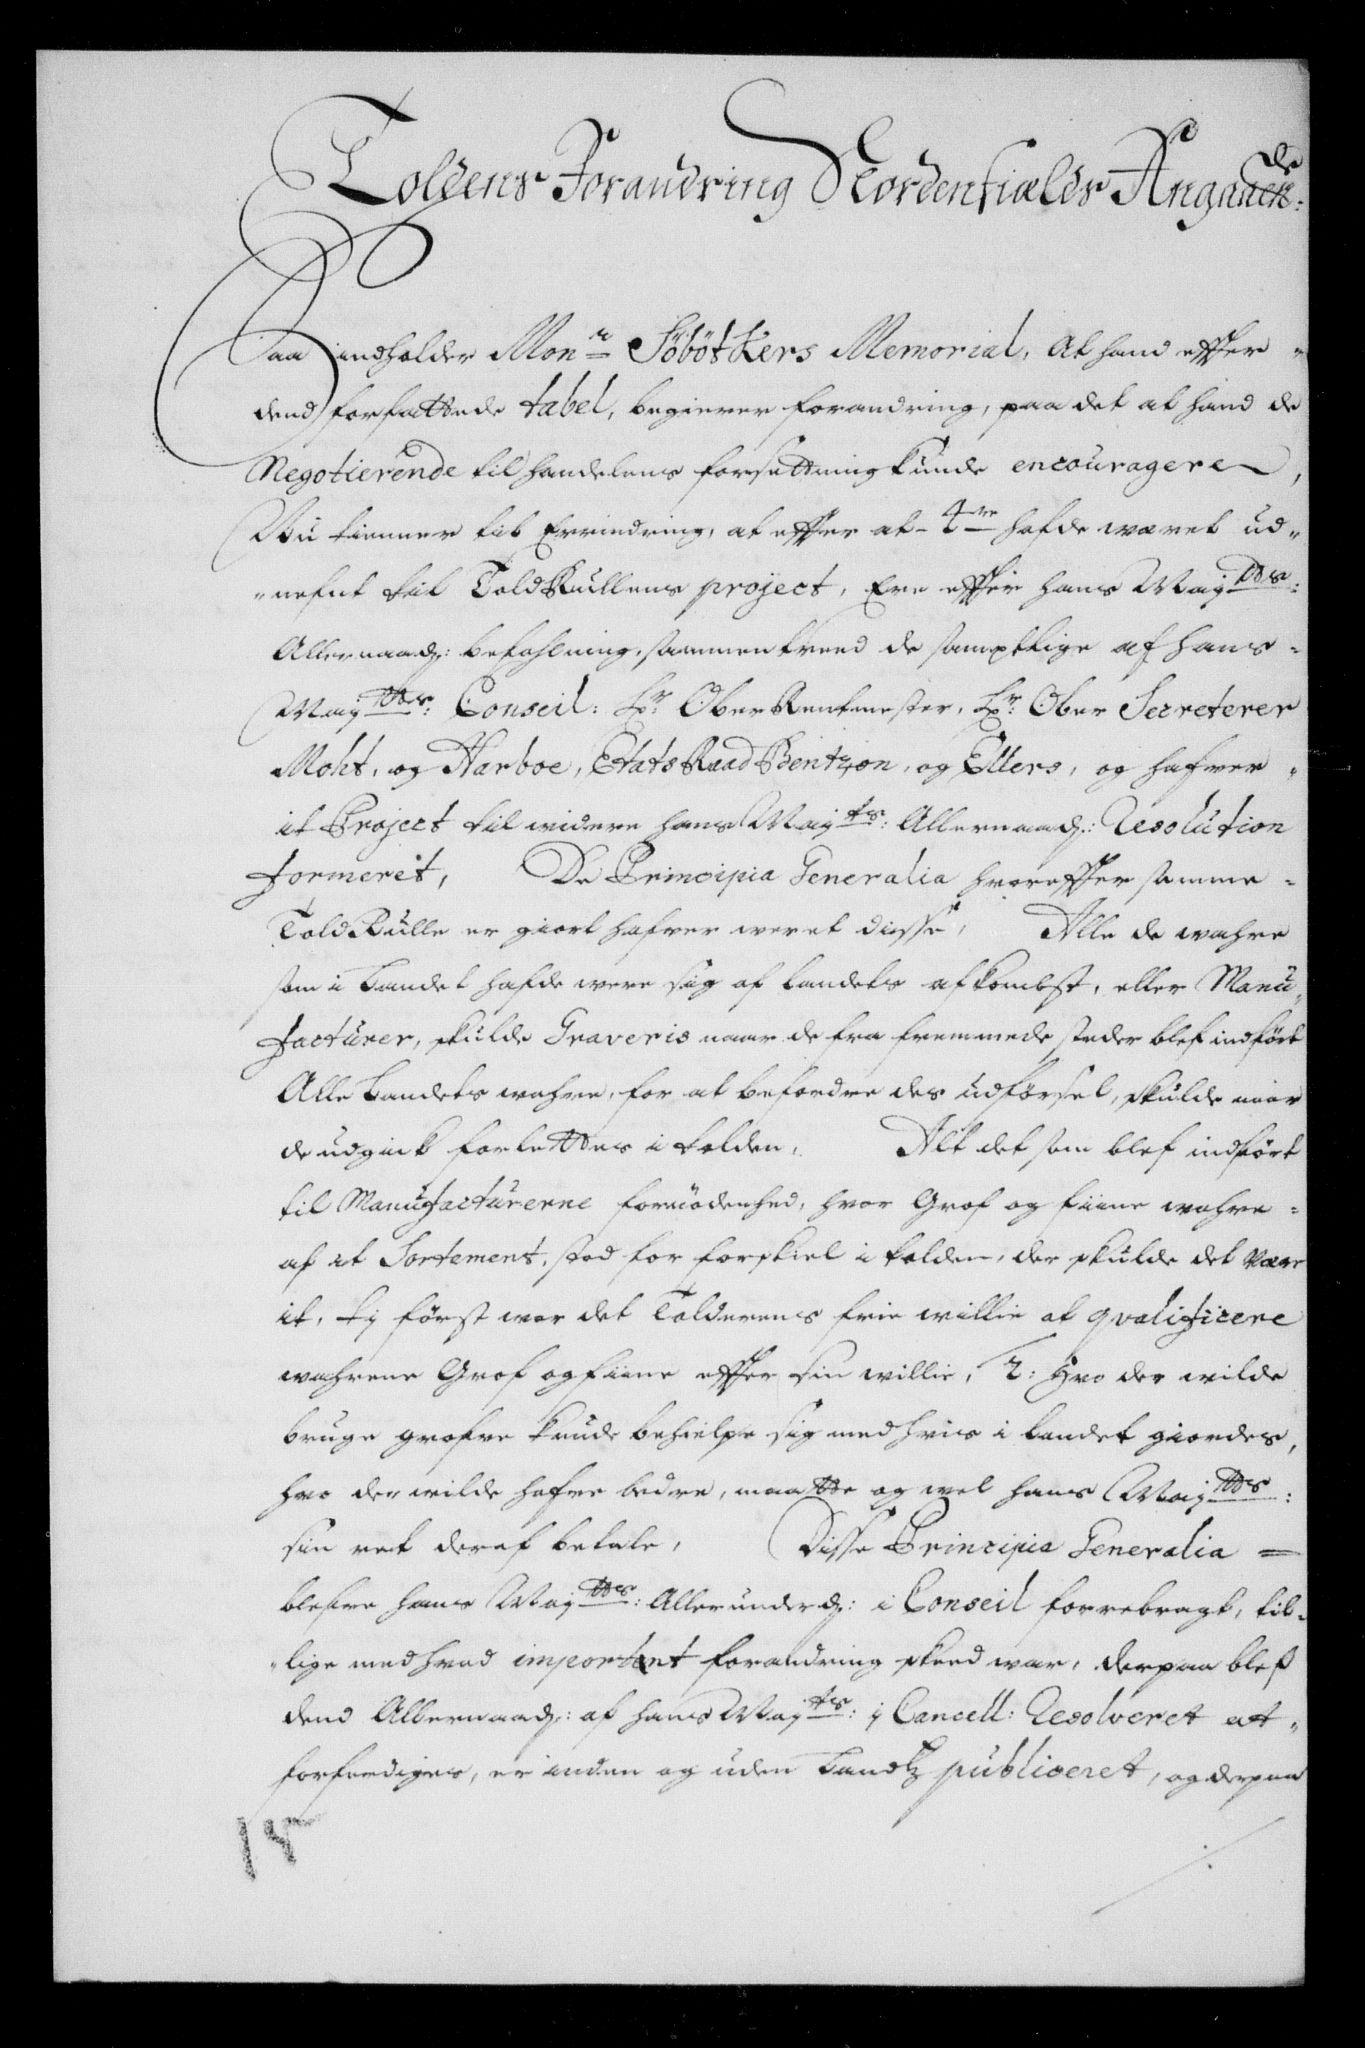 Toldens Forandring Nordenfields Anguaen:
de
Saa indholder Mon.r Söbötkers Memorial, At hand effter
dend forfattede tabel, begierer forandring, paa det at hand de
Negotierende til handelens forsettning kunde encouragere,
Nu tienner til Erindring, at effter at 4re hafde wæret ud„
„nefnt til ToldRullens project, Ere effter hans Maytts:
Allernaadg: befahlning, sammentreed de samptlige af hans
Maytts: Conseil: Hr: Ober Rentmester, Hr: Ober Secreterer
Moht, og Harboe, Etats Raad Bentzon, og Ellers, og hafver
it Project til widere hans Mayts: Allernaadg: Resolution
formeret, De Principia Generalia hvoreffter samme
ToldRulle er giort hafver weret disse, Alle de wahre
som i Landet hafde were sig af landets afkombst, eller Manu„
facturer, skulde Graveris naar de fra fremmede steder blef indført
Alle Landets wahre, for at befordre des udförsel, skulde naar
de udgick forlettes i tolden, Alt det som blef indført
til Manufacturerne fornödenhed, hvor Grof og fiine wahre
af it Sortement, stod for forskiel i tolden, der skulde det være
it, ty först war det Tolderens frie willie at qvalificere
wahrene Grof og fiine effter sin willie, 2: Hvo der wilde
bruge grofve kunde behielpe sig med hvis i landet giordes,
hvo der wilde hafve bedre, maatte og wel hans Maytts:
sin ret deraf betale, Disse Principia Generalia
blefve hans Maytts: Allerunderdg: i Conseil forrebragt, til„
„lige med hvad important forandring skeed war, derpaa blef
dend Allernaadg: af hans Mayts: j Cancell: Resolveret at
forferdiges, er inden og uden Landtz publiceret, og derpaa
18